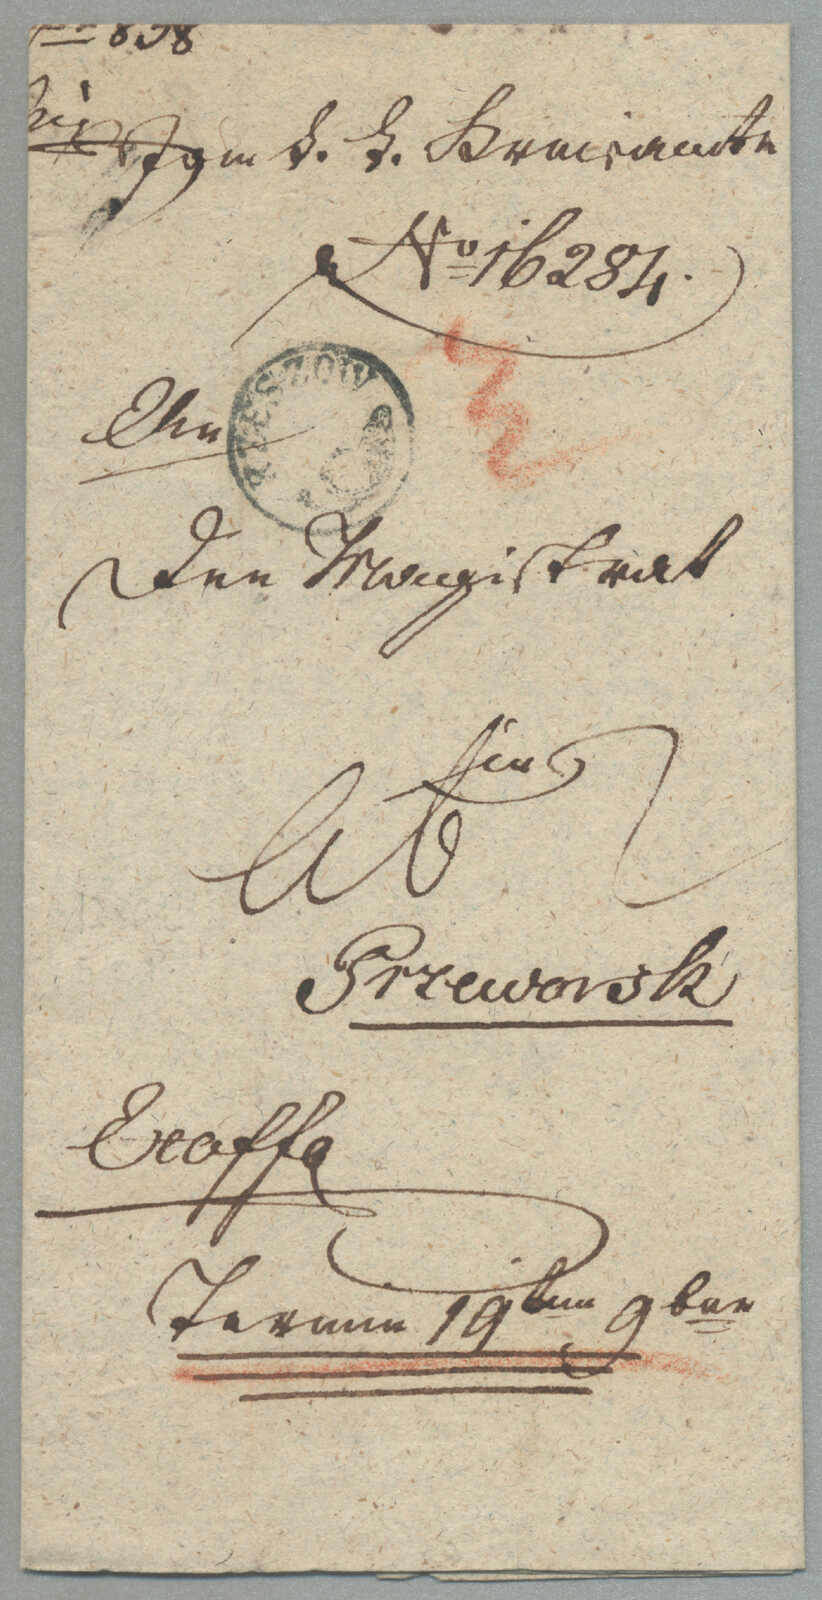 838
Vom k. k. Kreisamte
No 16284.
RZESZOW
An
Den Magistrat
in
Przeworsk
Exoffo
Termin 19ten 9ber